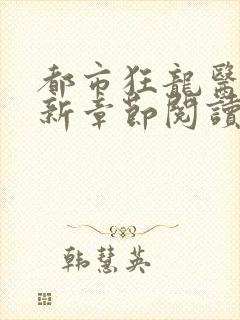 都市狂龍醫
新章節閱讀
韩慧英